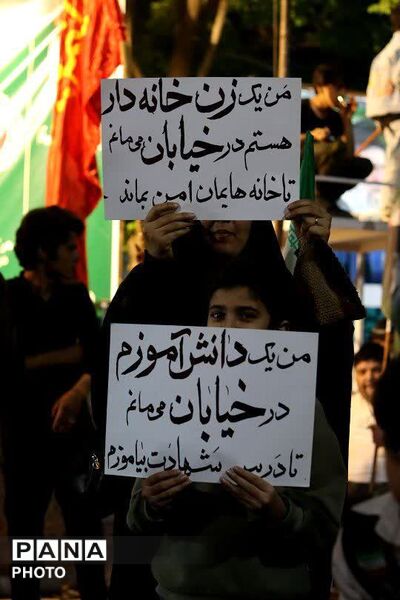 من یک زن خانه دار
هستم در خیابان می مانم
تا خانه هایمان امن بماند.
من یک دانش آموزم
در خیابان می مانم
تا درس شهادت بیاموزم
PANA
PHOTO